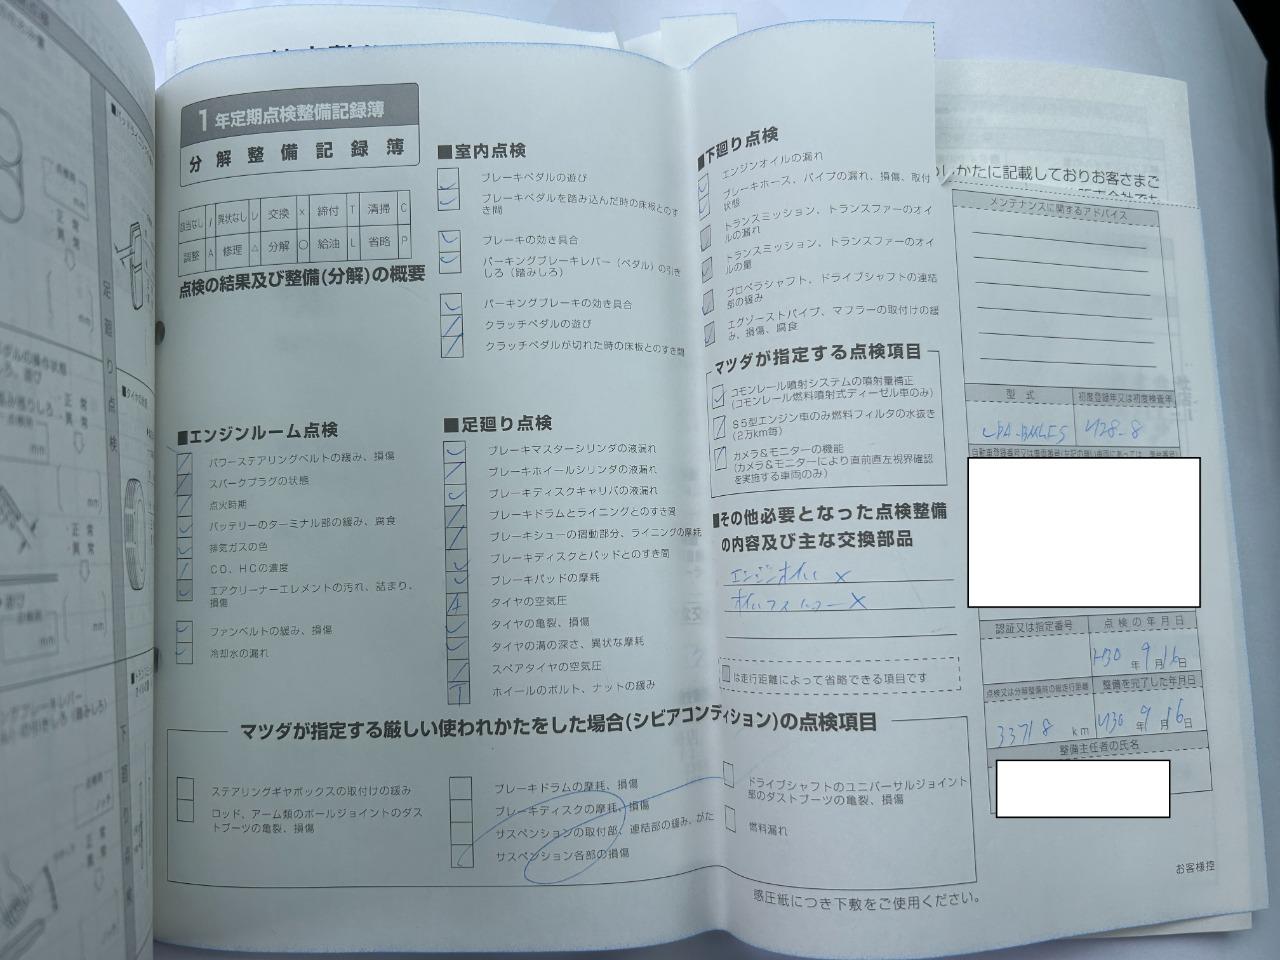 1年定期点検整備記録簿
分解整備記録簿
該当なし / 異状なし レ 交換 × 締付 T 清掃 C
調整 A 修理 △ 分解 ○ 給油 L 省略 P
点検の結果及び整備(分解)の概要
■エンジンルーム点検
パワーステアリングベルトの緩み、損傷
スパークプラグの状態
点火時期
バッテリーのターミナル部の緩み、腐食
排気ガスの色
CO、HCの濃度
エアクリーナーエレメントの汚れ、詰まり、
損傷
ファンベルトの緩み、損傷
冷却水の漏れ
■室内点検
ブレーキペダルの遊び
ブレーキペダルを踏み込んだ時の床板とのす
き間
ブレーキの効き具合
パーキングブレーキレバー(ペダル)の引き
しろ(踏みしろ)
パーキングブレーキの効き具合
クラッチペダルの遊び
クラッチペダルが切れた時の床板とのすき間
■足廻り点検
ブレーキマスターシリンダの液漏れ
ブレーキホイールシリンダの液漏れ
ブレーキディスクキャリパの液漏れ
ブレーキドラムとライニングとのすき間
ブレーキシューの摺動部分、ライニングの摩耗
ブレーキディスクとパッドとのすき間
ブレーキパッドの摩耗
A タイヤの空気圧
タイヤの亀裂、損傷
タイヤの溝の深さ、異状な摩耗
スペアタイヤの空気圧
T ホイールのボルト、ナットの緩み
■下廻り点検
エンジンオイルの漏れ
ブレーキホース、パイプの漏れ、損傷、取付
状態
トランスミッション、トランスファーのオイ
ルの漏れ
トランスミッション、トランスファーのオイ
ルの量
プロペラシャフト、ドライブシャフトの連結
部の緩み
エグゾーストパイプ、マフラーの取付けの緩
み、損傷、腐食
マツダが指定する点検項目
コモンレール噴射システムの噴射量補正
(コモンレール燃料噴射式ディーゼル車のみ)
S5型エンジン車のみ燃料フィルタの水抜き
(2万km毎)
カメラ&モニターの機能
(カメラ&モニターにより直前直左視界確認
を実施する車両のみ)
■その他必要となった点検整備
の内容及び主な交換部品
エンジンオイル ×
オイルフィルター ×
は走行距離によって省略できる項目です
マツダが指定する厳しい使われかたをした場合(シビアコンディション)の点検項目
ステアリングギヤボックスの取付けの緩み
ロッド、アーム類のボールジョイントのダス
トブーツの亀裂、損傷
ブレーキドラムの摩耗、損傷
ブレーキディスクの摩耗、損傷
サスペンションの取付部、連結部の緩み、がた
サスペンション各部の損傷
ドライブシャフトのユニバーサルジョイント
部のダストブーツの亀裂、損傷
燃料漏れ
感圧紙につき下敷をご使用ください。
しかたに記載しておりお客さまご
メンテナンスに関するアドバイス
型式 初度登録年又は初度検査年
H28-8
認証又は指定番号 点検の年月日
H30年9月16日
点検又は分解整備時の総走行距離 整備を完了した年月日
33718 km H30年9月16日
整備主任者の氏名
お客様控
足廻り点検
下廻り点検